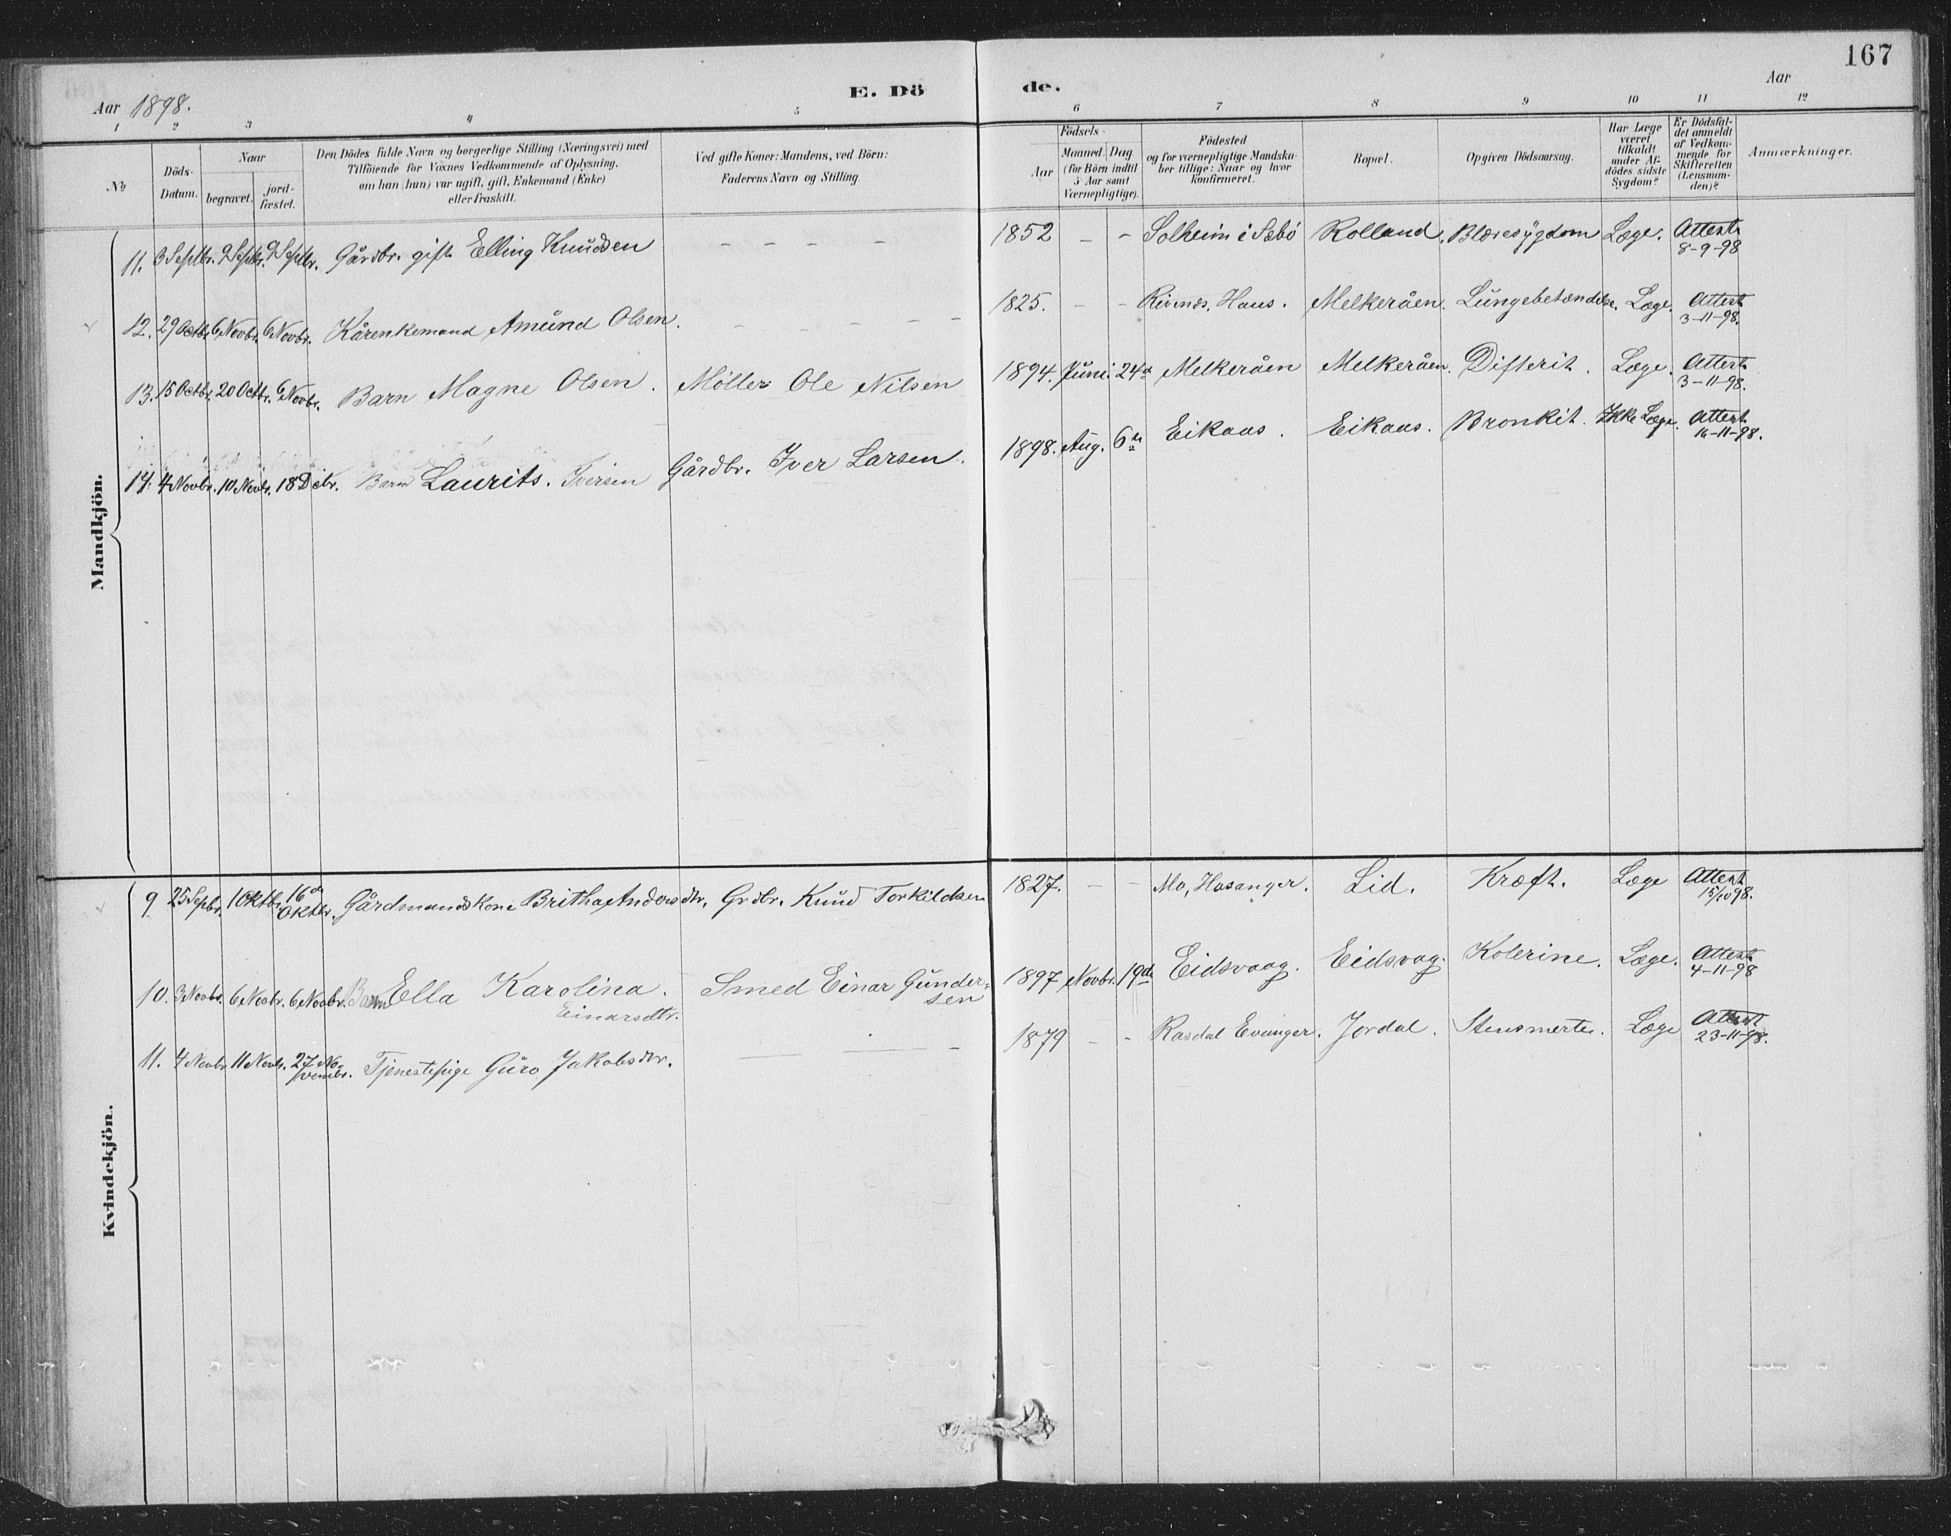 167
E. Dö de.
Aar 1898.
Aar
1 2 3 4 5 6 7 8 9 10 11 12
No
Döds-Datum.
Naar
begravet.
jord-fæstet.
Den Dödes fulde Navn og borgerlige Stilling (Næringsvei) med
Tilföiende for Voxnes Vedkommende af Oplysning,
om han (hun) var ugift, gift, Enkemand (Enke)
eller fraskilt.
Ved gifte Koner: Mandens, ved Börn:
Faderens Navn og Stilling.
Födsels-
Aar
Maaned. Dag
(for Börn indtil
5 Aar samt
Værnepligtige).
Födested
og for værnepligtige Mandska-
ber tillige: Naar og hvor
konfirmeret.
Bopæl.
Opgiven Dödsaarsag.
Har Læge
været
tilkaldt
under Af-
dödes sidste
Sygdom?
Er Dödsfal-
det anmeldt
af Vedkom-
mende for
Skifteretten
(Lensman-
den)?
Anmærkninger.
Mandkjön.
11. 3 Septbr. 9 Septbr. 9 Septbr. Gårdbr. gift Elling Knudsen – – – – 1852 – – Solheim i Sæbö Rolland. Blæresygdom Læge. Attest 8-9-98
12. 29 Octbr. 6 Novbr. 6 Novbr. Kårenkemand Amund Olsen. – – – – – 1825. – – Haus. Melkeråen. Lungebetændelse. Læge. Attest 3-11-98.
13. 15 Octbr. 20 Octbr. 6 Novbr. Barn Magne Olsen. Möller Ole Nilsen 1894. Juni 24d Melkeråen Melkeråen. Difterit. Læge. Attest 3-11-98.
14. 4 Novbr. 10 Novbr. 18 Dcbr. Barn Laurits. Iversen Gårdbr. Iver Larsen. 1898. Aug. 6te Eikaas. Eikaas. Bronkit. Ikke Læge. Attest 16-11-98.
Kvindekjön.
9 25 Sepbr. 1 Oktbr. 16d Oktbr. Gårdmandskone Britha Andersdtr. Grdbr. Knud Torkildsen 1827. – – Mo, Hosanger. Lid. Kræft. Læge Attest 15/10 98.
10. 3 Novbr. 6 Novbr. 6 Novbr. Barn Ella Karolina. Einarsdtr. Smed Einar Gundersen 1897 Novbr. 19de Eidsvaag. Eidsvag. Kolerine. Læge. Attest 4-11-98
11. 4 Novbr. 11 Novbr. 27 November. Tjenestepige Guro Jakobsdtr. – – – 1879 – – Rasdal Evanger. Jordal. Stensmerter. Læge Attest 23-11-98.